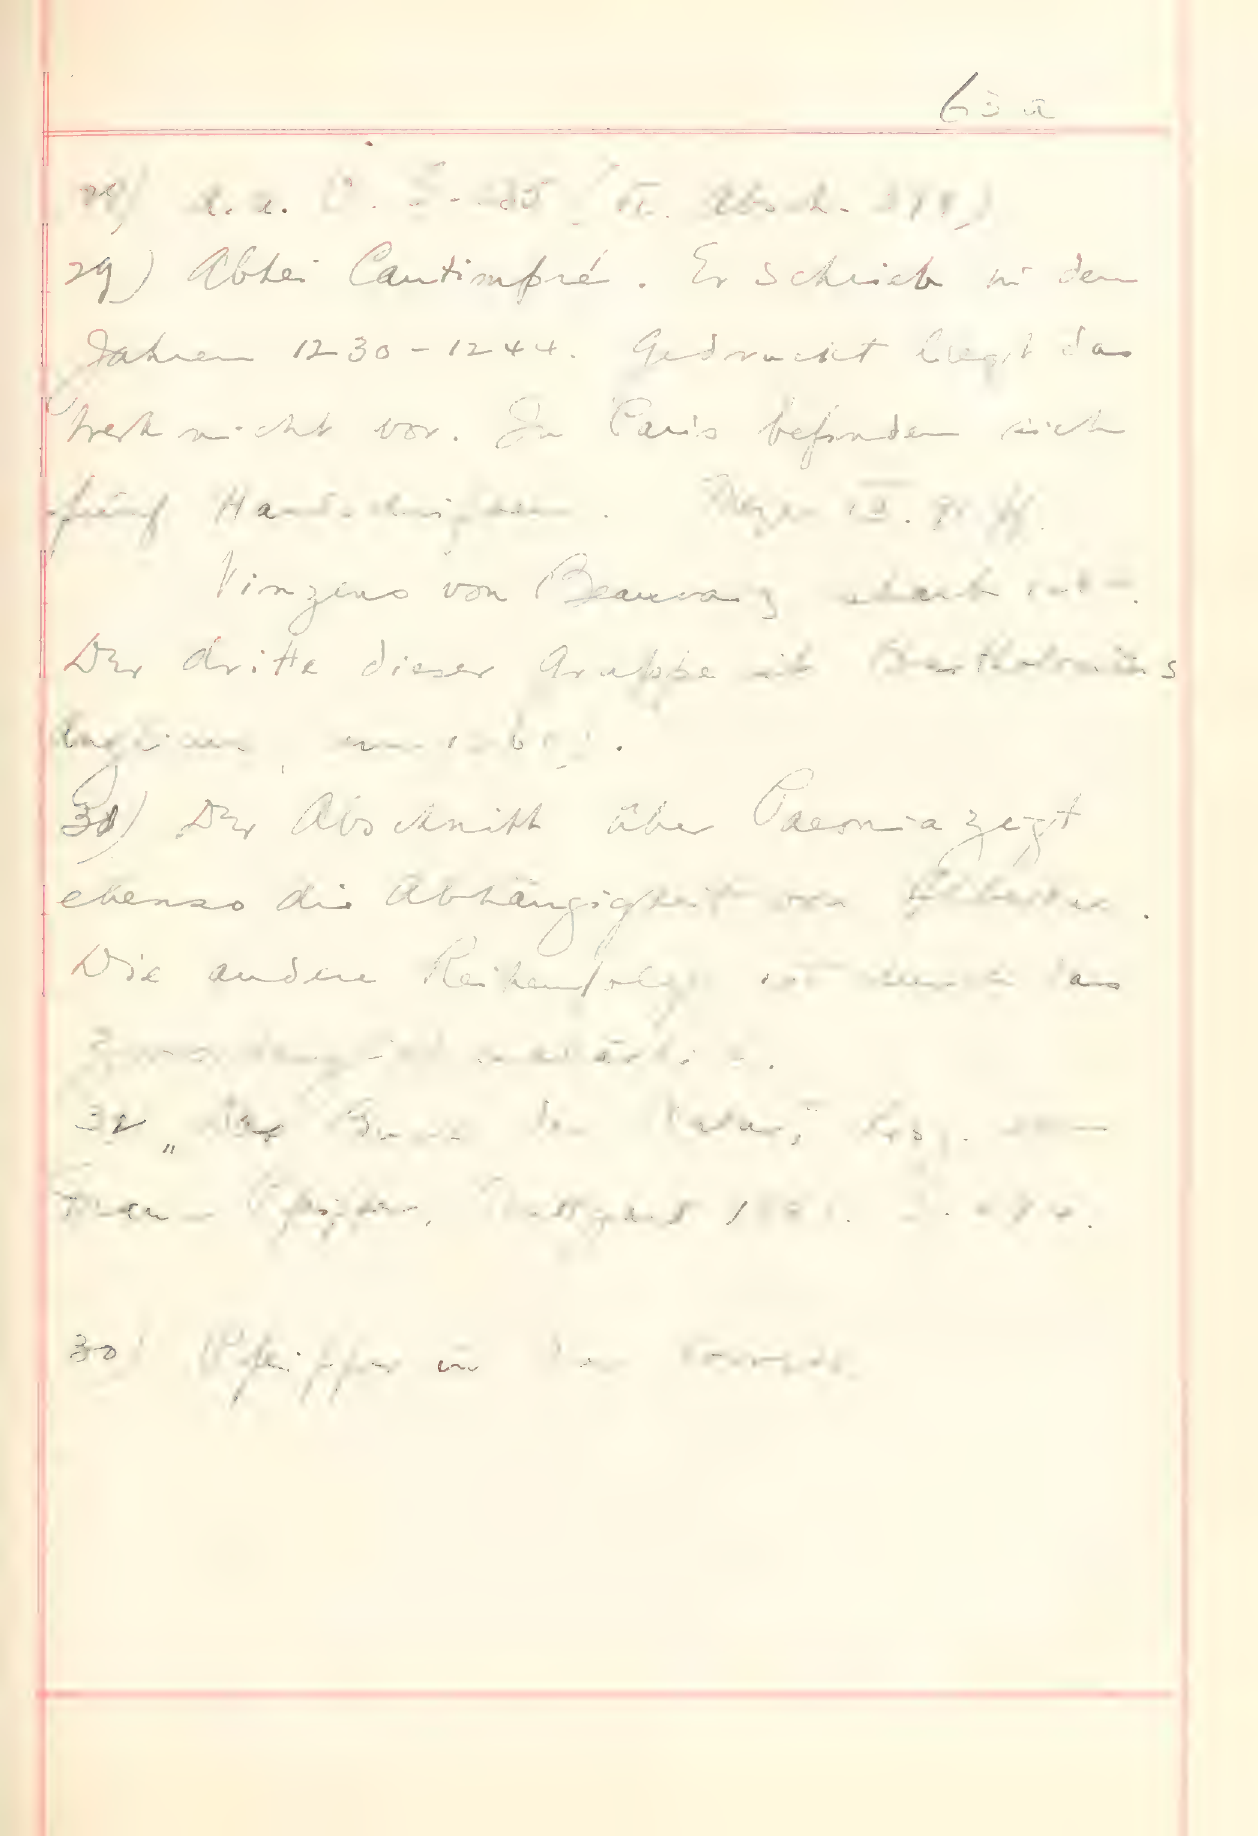 63a
28) a. a. O. S.
29) Abtei Cantimpré. Er schrieb in den
Jahren 1230-1244. Gedruckt liegt das
Werk nicht vor. In Paris befinden sich
fünf Handschriften. Meyer IV. 91 ff.
Vinzens von Beauvais starb
Der dritte dieser Gruppe ist Bartholomäus
Anglicus, um 1260).
30) Der Abschnitt über Paeonia zeigt
ebenso die Abhängigkeit von
Die andere Reihenfolge ist durch das
32 „das Buch der Natur", hrsg. von
Franz Pfeiffer, Stuttgart
30) Pfeiffer in der Vorrede.